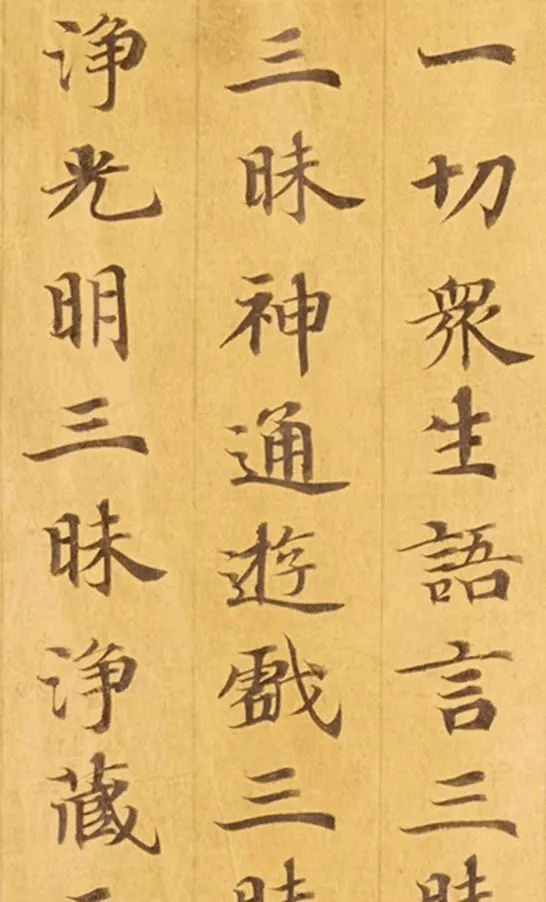 一切眾生語言三昧
三昧神通遊戲三昧
淨光明三昧淨藏三